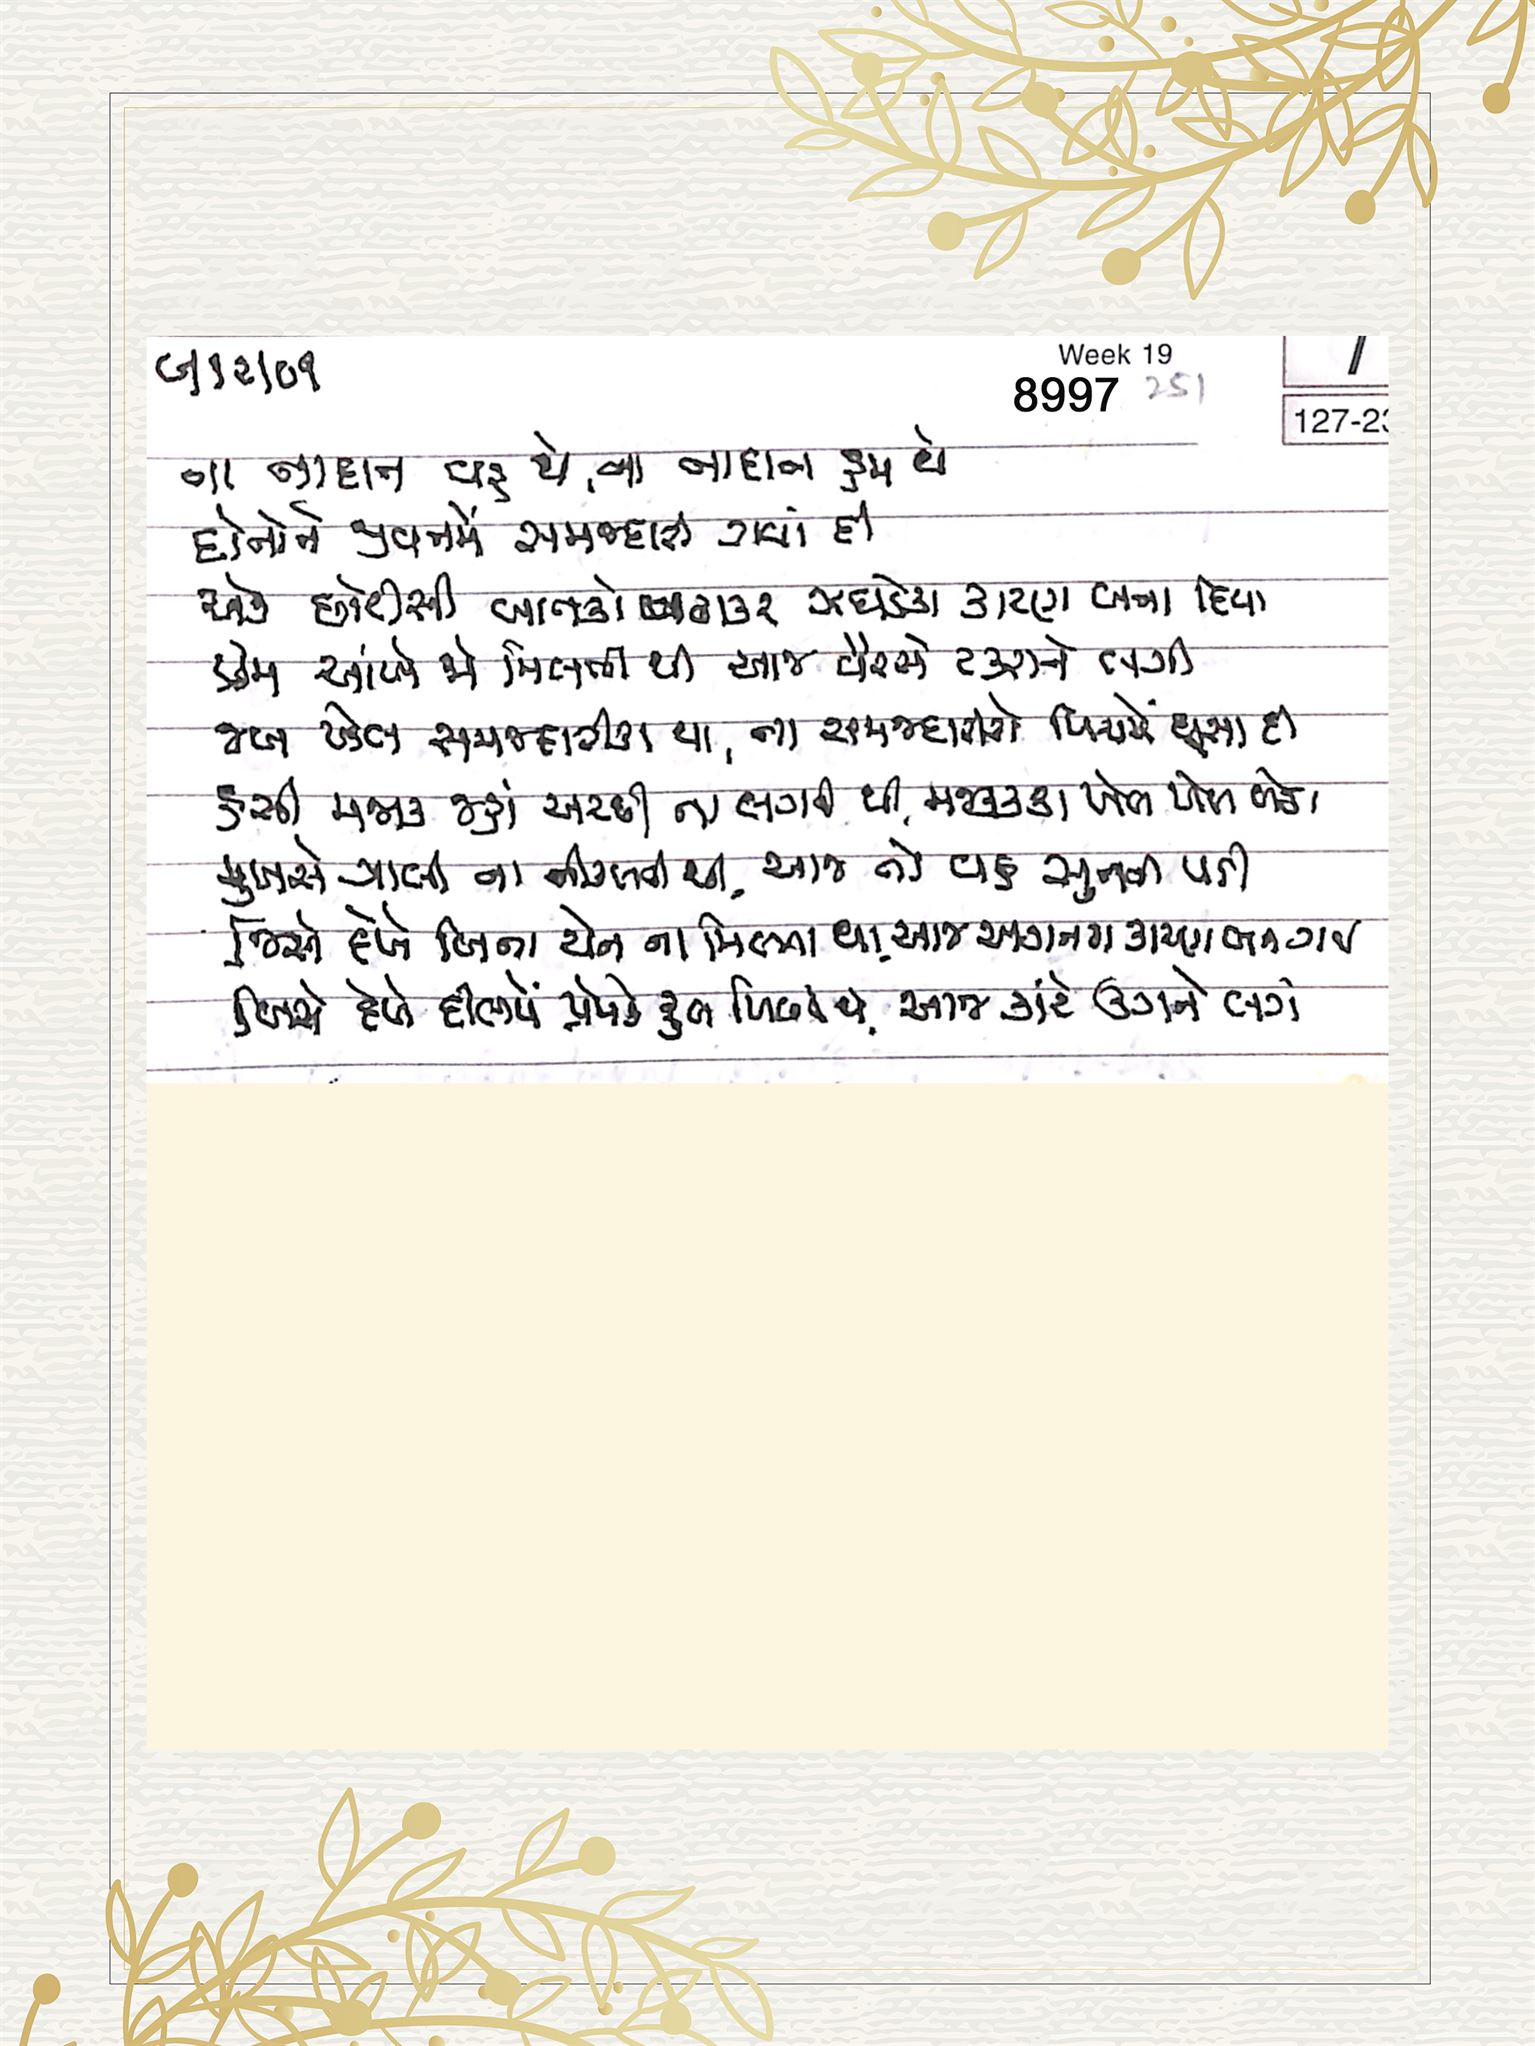 Week 19
8997 251
127-23
ના નાદાન વહ થે, ના નાદાન હમ થે
દોનોંને જીવનમેં સમજદારી ગવાં દી
એક છોટીસી બાતકો ઝઘડેકા કારણ બના દિયા
પ્રેમ આંખે જો મિલતી થી આજ વૈરસે ટકરાને લગી
જબ ખેલ સમજદારીકા થા, ના સમજદારીકો બિચમેં ઘુસા દી
હસી મજાક જહાં અચ્છી ના લગતી થી, મજાકકા ખેલ ખેલ બેઠે
મુખસે ગાલી ના નીકલતી થી, આજ તો વહ સુનની પડી
જિસે દેખે બિના ચેન ના મિલતા થા, આજ કારણ બન ગયા
જિસે દેખે દીલમેં પ્રેમકે ફુલ ખિલતે થે, આજ કાંટે ઉગને લગે